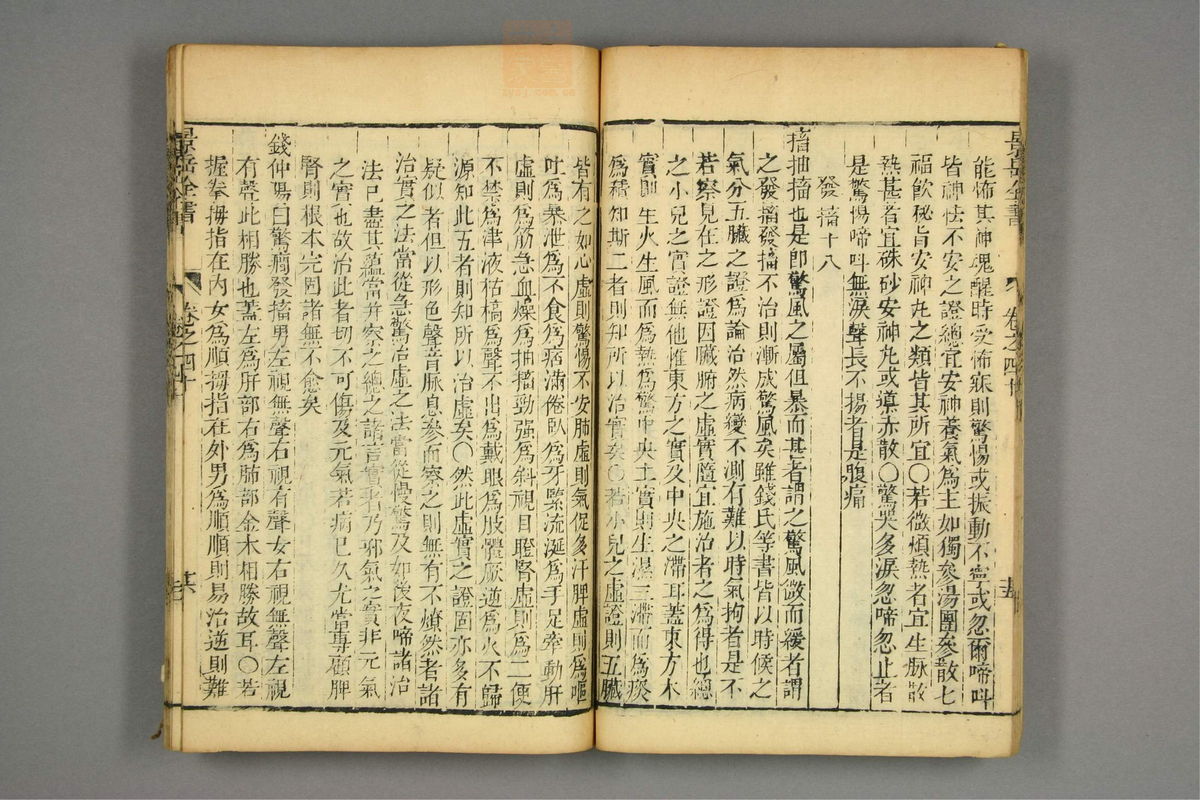 景岳全書
卷之四十
能怖其神魂醒時受怖寐則驚惕或振動不寧或忽爾啼呌
皆神怯不安之證總宜安神養氣為主如獨參湯團參散七
福飲秘旨安神丸之類皆其所宜○若微煩熱者宜生脉散
熱甚者宜硃砂安神丸或導赤散○驚哭多淚忽啼忽止者
是驚惕啼呌無淚聲長不揚者是腹痛
發搐十八
搐抽搐也是即驚風之屬但暴而甚者謂之驚風微而緩者謂
之發搐發搐不治則漸成驚風矣雖錢氏等書皆以時候之
氣分五臟之證為論治然病變不測有難以時氣拘者是不
若察見在之形證因臟腑之虛實隨宜施治者之為得也總
之小兒之實證無他惟東方之實及中央之滯耳蓋東方木
實則生火生風而為熱為驚中央土實則生濕生滯而為痰
為積知斯二者則知所以治實矣○若小兒之虛證則五臟
皆有之如心虛則驚惕不安肺虛則氣促多汗脾虛則為嘔
吐為暴泄為不食為痞滿倦臥為牙緊流涎為手足牽動肝
虛則為筋急血燥為抽搐勁強為斜視目瞪腎虛則為二便
不禁為津液枯槁為聲不出為戴眼為肢體厥逆為火不歸
源知此五者則知所以治虛矣○然此虛實之證固亦多有
疑似者但以形色聲音脉息參而察之則無有不燎然者諸
治實之法當從急驚治虛之法當從慢驚及如後夜啼諸治
法已盡其蘊當并察之總之諸言實者乃邪氣之實非元氣
之實也故治此者切不可傷及元氣若病已久尤當專顧脾
腎則根本完固諸無不愈矣
錢仲陽曰驚癎發搐男左視無聲右視有聲女右視無聲左視
有聲此相勝也蓋左為肝部右為肺部金木相勝故耳○若
握拳拇指在內女為順拇指在外男為順順則易治逆則難
景岳全書
卷之四十